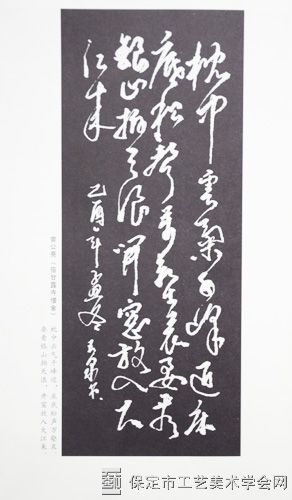 枕中雲氣千峰近床
底松聲万壑哀要看
銀山拍天浪開窗放入大
江来
乙酉年孟冬
曾公亮《宿甘露寺僧舍》 枕中云气千峰近,床底松声万壑哀。
要看银山拍天浪,开窗放入大江来。
保定市工艺美术学会网